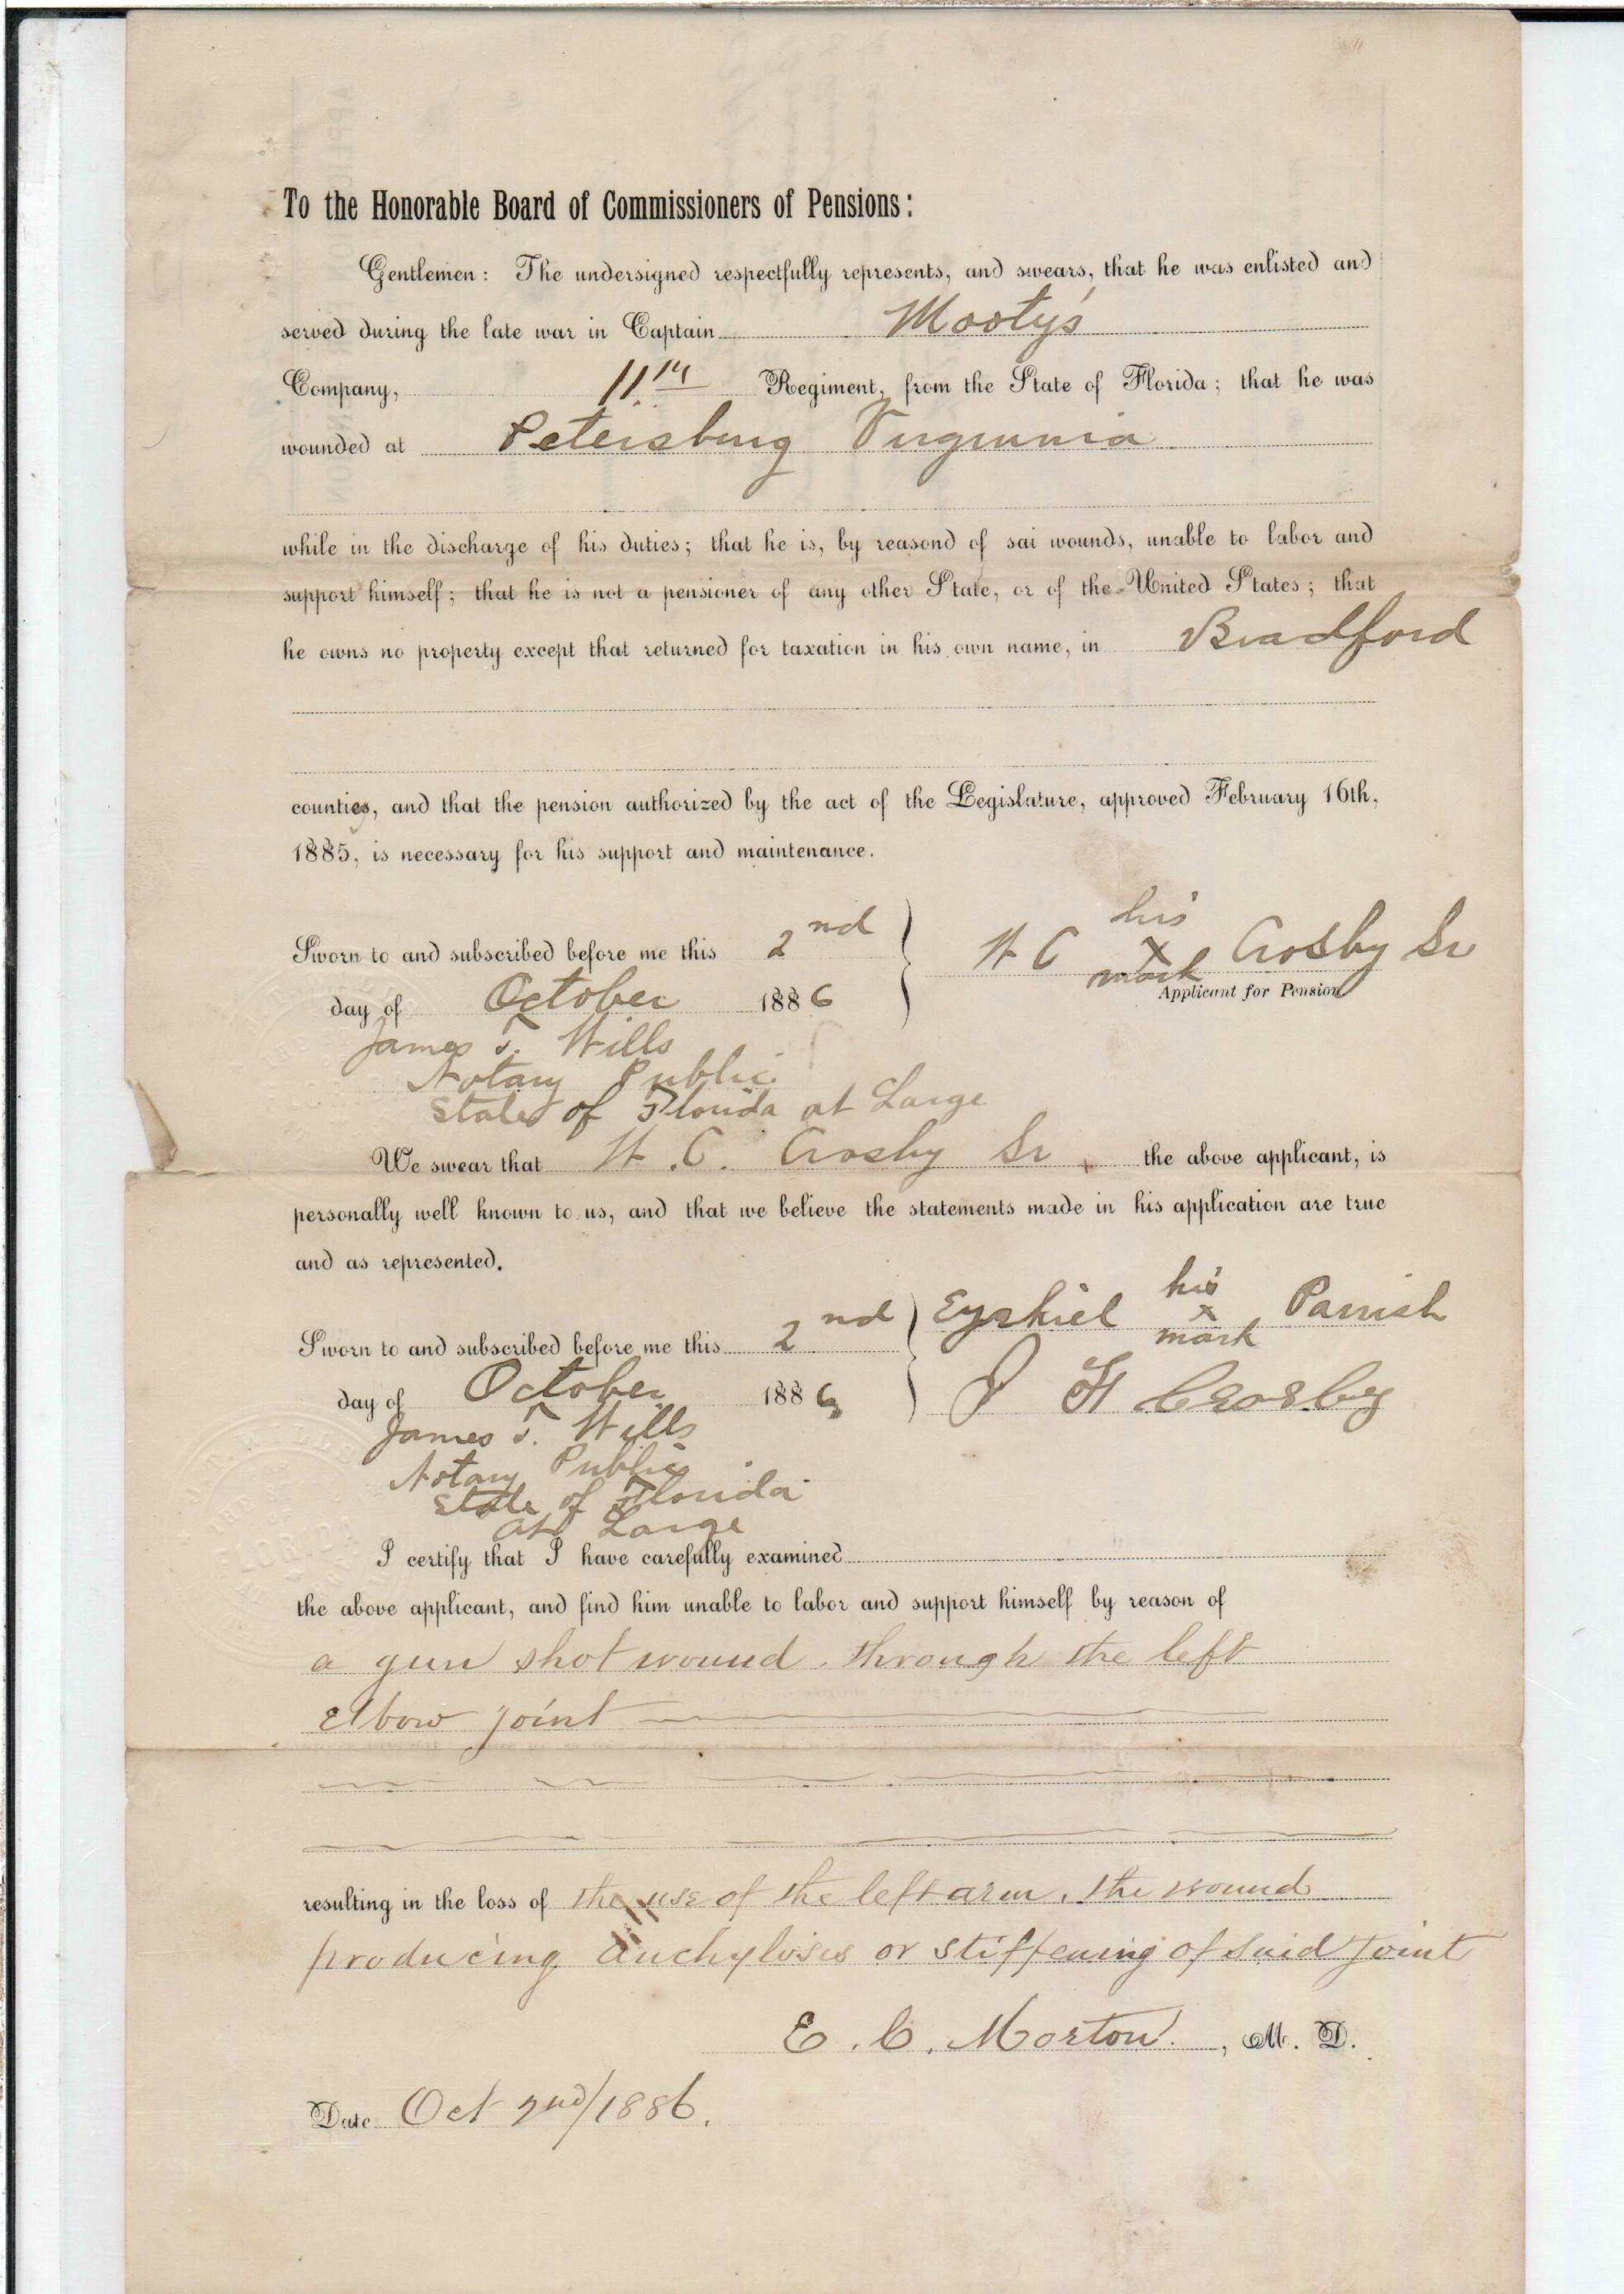 To the Honorable Board of Commissioners of Pensions:
Gentlemen: The undersigned respectfully represents, and swears, that he was enlisted and
served during the late war in Captain Mooty's
Company, 11th Regiment, from the State of Florida; that he was
wounded at Petersburg Virginnia
while in the discharge of his duties; that he is, by reasond of sai wounds, unable to labor and
support himself; that he is not a pensioner of any other State, or of the United States; that
he owns no property except that returned for taxation in his own name, in Bradford
counties, and that the pension authorized by the act of the Legislature, approved February 16th,
1885, is necessary for his support and maintenance.
his
Sworn to and subscribed before me this 2nd } H C x Crosby Sr
mark
day of October 1886 Applicant for Pension
James T. Wills
Notary Public
State of Florida at Large
We swear that H. C. Crosby Sr, the above applicant, is
personally well known to us, and that we believe the statements made in his application are true
and as represented.
his
Sworn to and subscribed before me this 2nd } Ezekiel x Parrish
mark
day of October 1886 J H Crosby
James T. Wills
Notary Public
State of Florida
at Large
I certify that I have carefully examined
the above applicant, and find him unable to labor and support himself by reason of
a gun shot wound through the left
Elbow joint
resulting in the loss of the use of the left arm, the wound
producing Anchylosis or stiffening of said Joint
E. C. Morton, M. D.
Date Oct 2nd/1886.